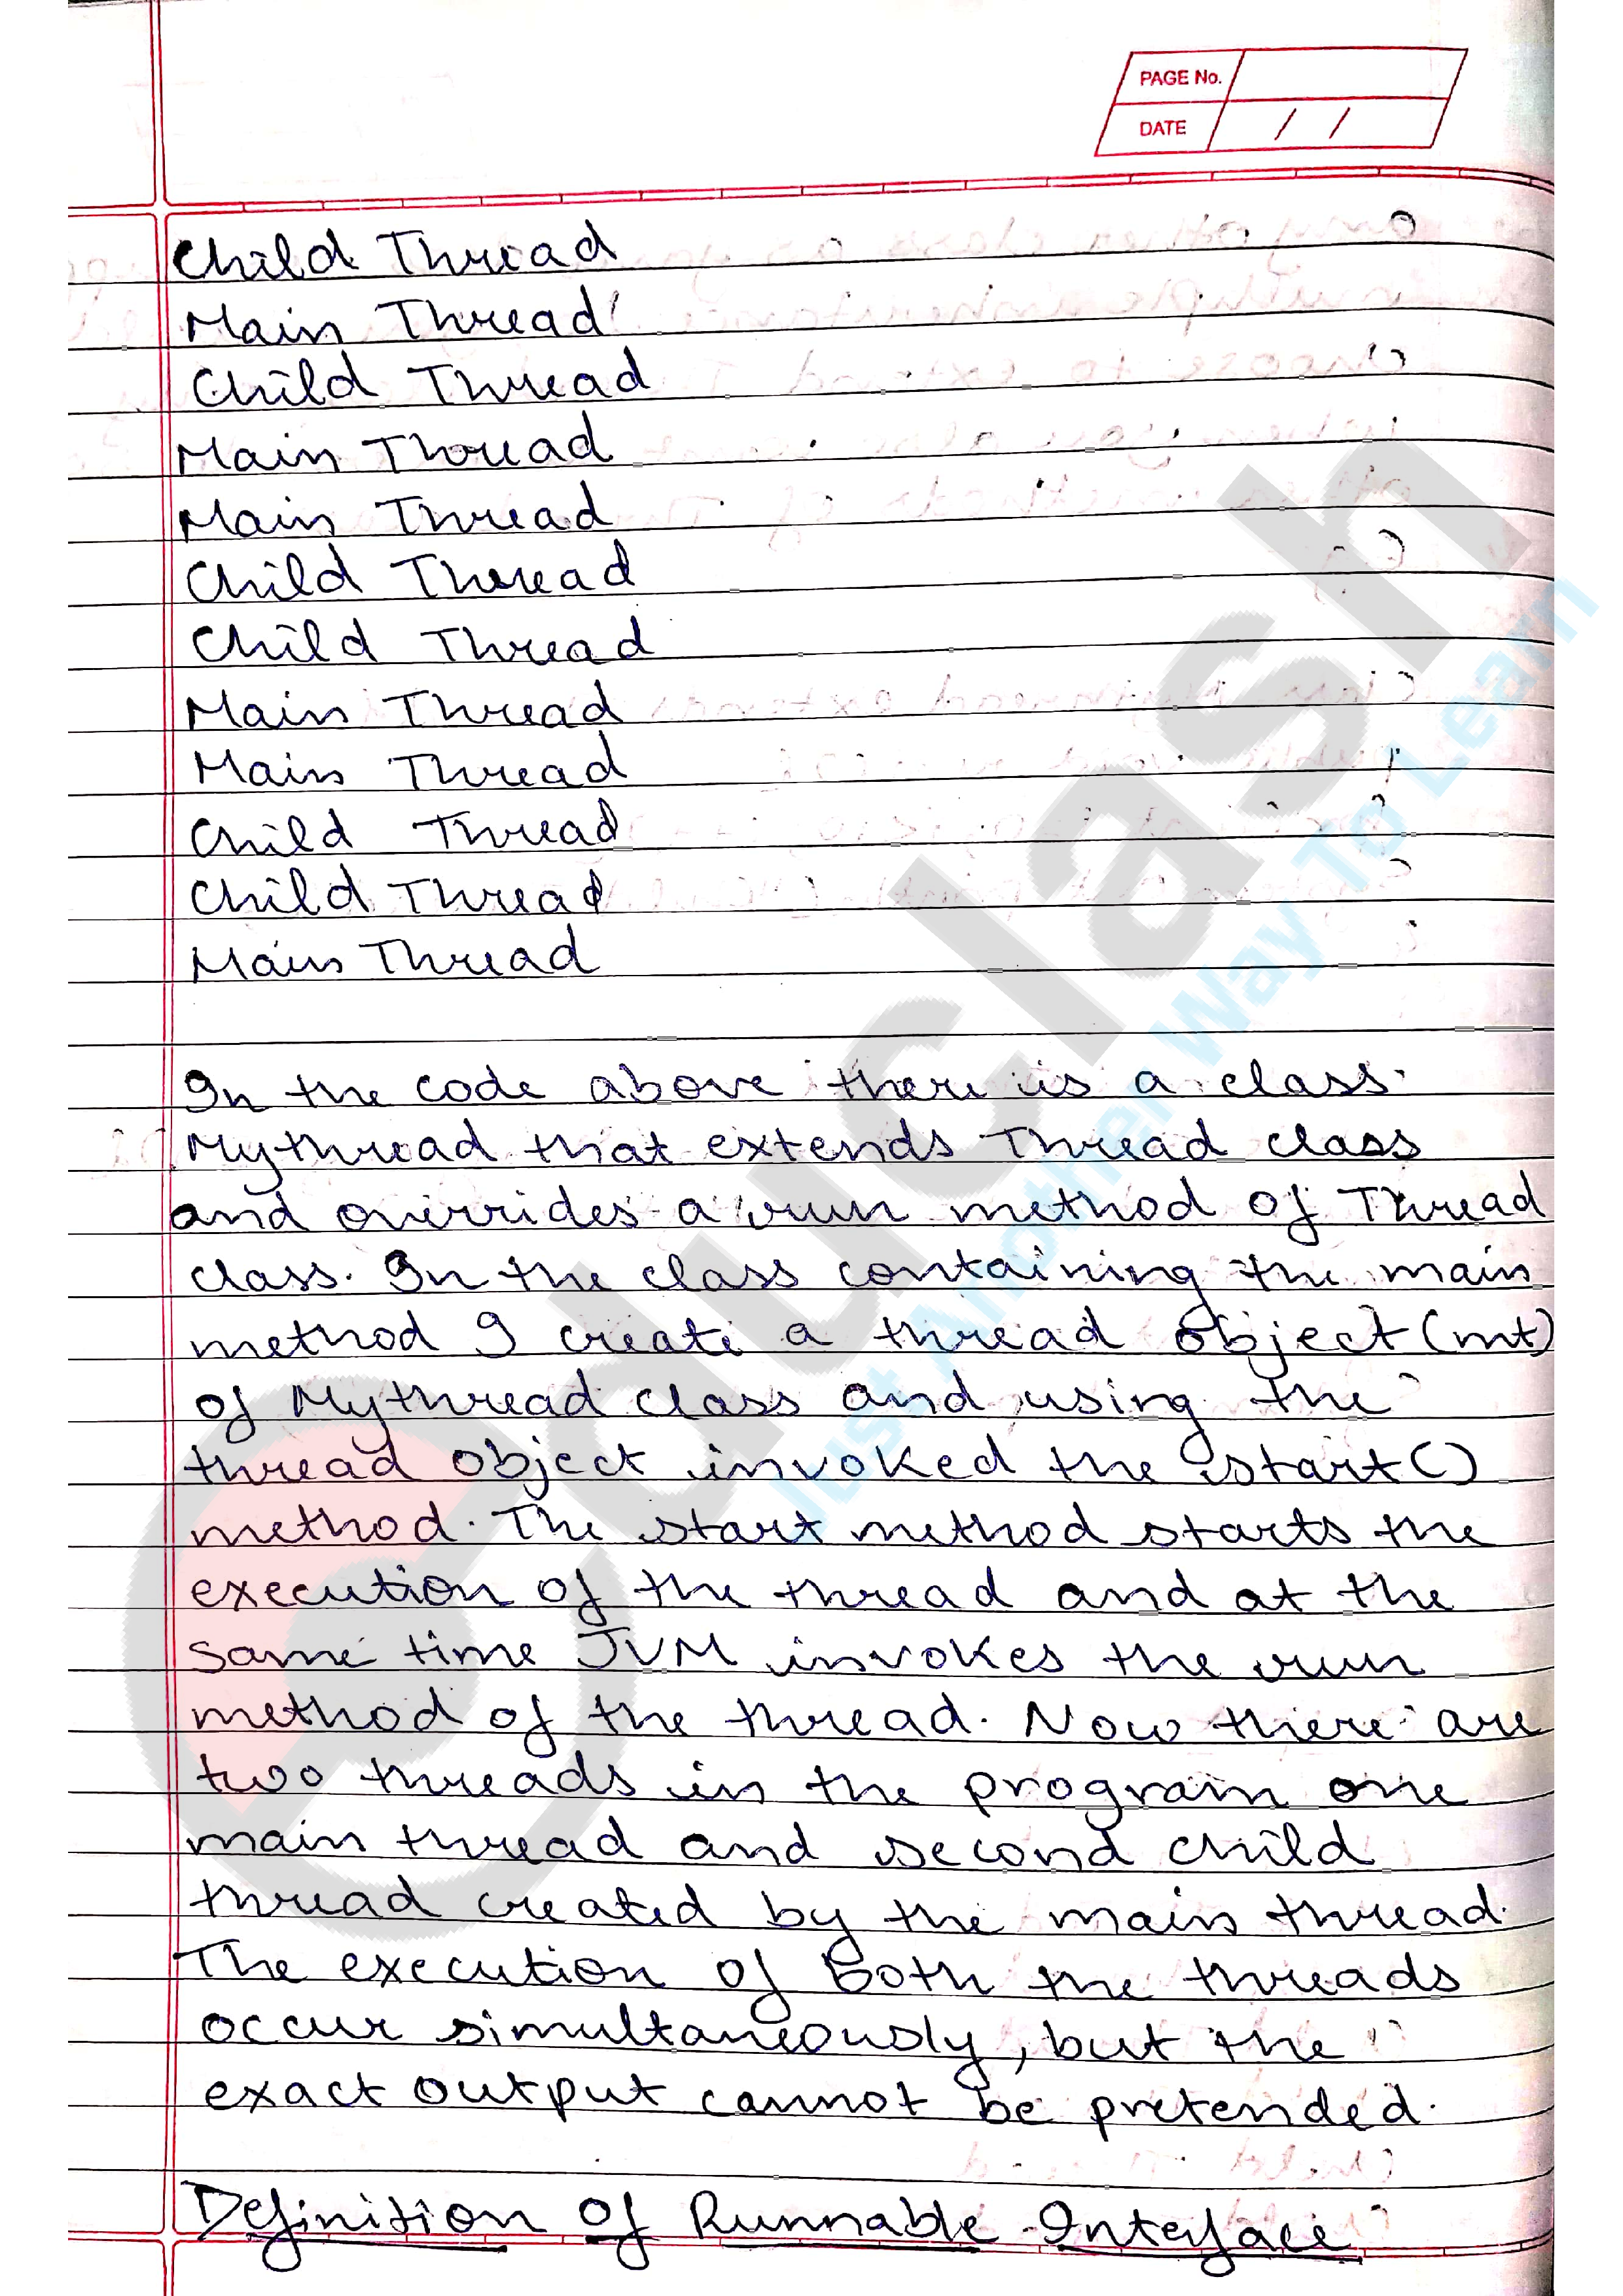 PAGE No.
DATE / /
Child Thread
Main Thread
Child Thread
Main Thread
Main Thread
Child Thread
Child Thread
Main Thread
Main Thread
Child Thread
Child Thread
Main Thread
In the code above there is a class
Mythread that extends Thread class
and overrides a run method of Thread
class. In the class containing the main
method I create a thread object (mt)
of Mythread class and using the
thread object invoked the start()
method. The start method starts the
execution of the thread and at the
same time JVM invokes the run
method of the thread. Now there are
two threads in the program one
main thread and second child
thread created by the main thread.
The execution of Both the threads
occur simultaneously, but the
exact output cannot be pretended.
Definition of Runnable Interface
educlash
Just Another Way To Learn